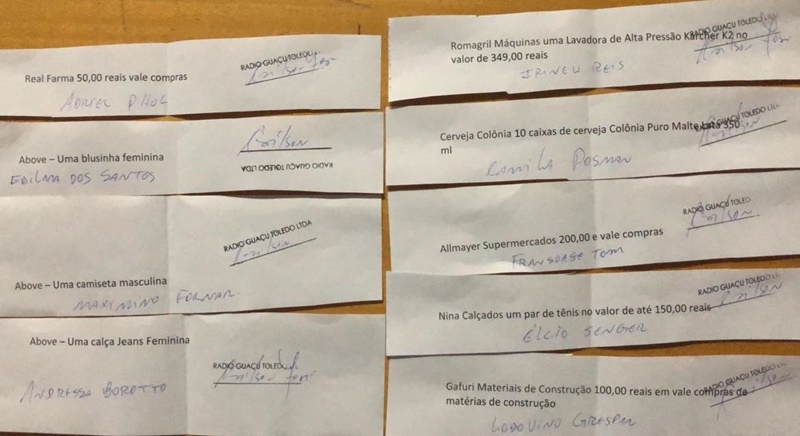 RADIO GUAÇU TOLEDO
Real Farma 50,00 reais vale compras
ADRIEL
Above – Uma blusinha feminina
RADIO GUAÇU TOLEDO LTDA
EDILMA DOS SANTOS
RADIO GUAÇU TOLEDO LTDA
Above – Uma camiseta masculina
MAXIMINO
Above – Uma calça Jeans Feminina
RADIO GUAÇU TOLEDO
ANDRESSA BOROTTO
RADIO GUAÇU TOLEDO
Romagril Máquinas uma Lavadora de Alta Pressão Kärcher K2 no
valor de 349,00 reais
IRINEU REIS
RADIO GUAÇU TOLEDO LTDA
Cerveja Colônia 10 caixas de cerveja Colônia Puro Malte Lata 350
ml
CAMILA POSMAN
RADIO GUAÇU TOLED
Allmayer Supermercados 200,00 e vale compras
TOM
RADIO GUAÇU TOLEDO L
Nina Calçados um par de tênis no valor de até 150,00 reais
ÉLCIO SENGER
RADIO GUAÇU TOLEDO LTDA
Gafuri Materiais de Construção 100,00 reais em vale compras de
matérias de construção
LODOVINO